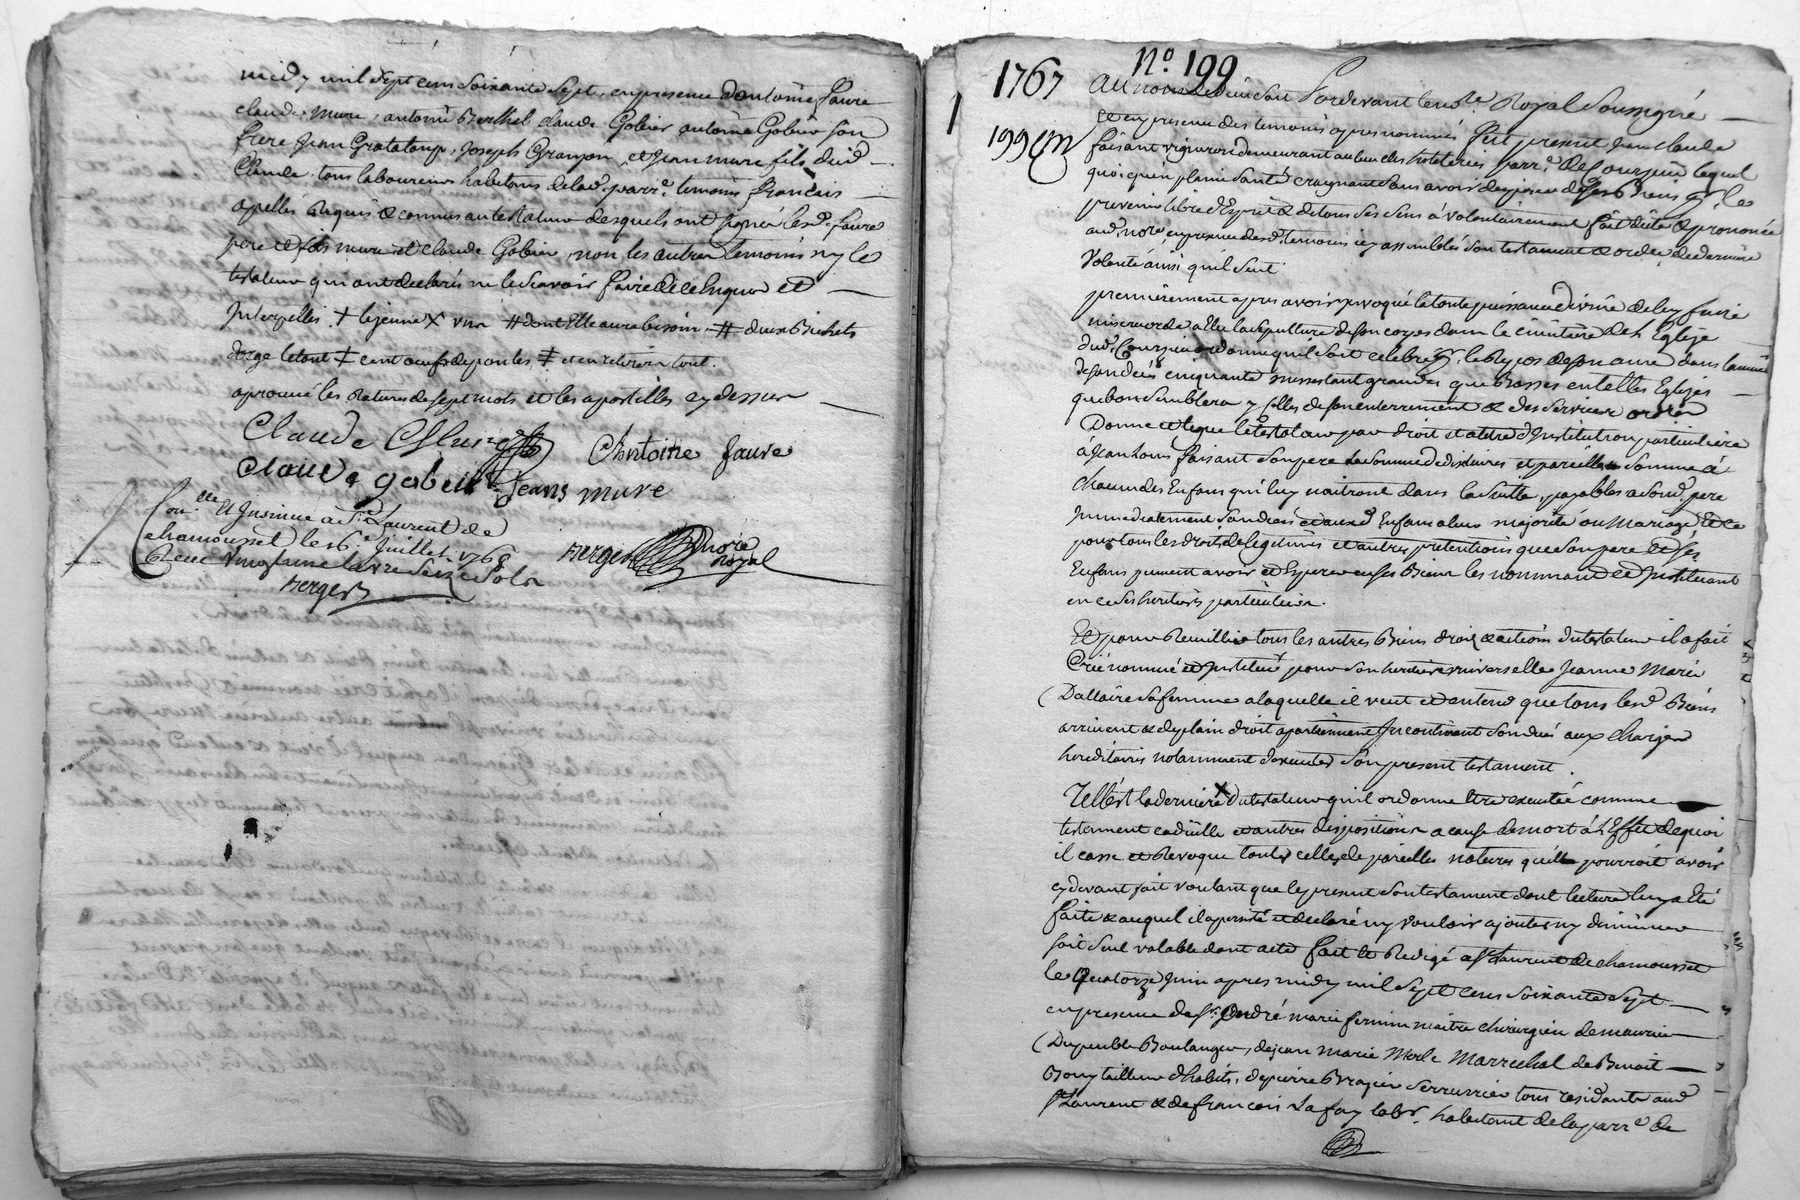 midy mil sept cens soixante sept, en presence d'antoine faure
claude mure, antoine Berthel claude Gobier antoine Gobier son
frere Jean Grataloup, Joseph Granjon, et Jean mure fils dud.
Claude, tous laboureurs habitans de lad. parr.e temoins francois
apellés Requis & connus au testateur desquels ont signé lesd. faure
pere et fils mure et claude Gobier, non les autres temoins ny le
testateur qui ont declarés ne le scavoir faire de ce Enquis et
Interpellés. + lejeune X vin # dont Elle aura besoin # deux Bichets
d'orge le tout ‡ cent oeufs de poules ‡ et en retirer tout.
aprouvé les Ratures de sept mots et les apostilles cy dessus
Claude Mure Antoine faure
Claude gobier Jean mure
Con.lle & Insinué a St. Laurent de
chamousset le 16e Juillet 1768
Receu vingt une livre seize sols
Berger
Berger no.re Royal
1767 N.o 199
199
Au nom de dieu soit Pardevant le no.re Royal soussigné
et en presence des temoins apres nommés fut present Jean claude
faisant vigneron demeurant au lieu des hoteleries parr.e de Courzieu lequel
quoique en pleine santé craignant sans avoir disposé de ses Biens, le
prevenu libre d'Esprit & de tous ses sens à volontairement fait dicté & prononcé
aud. no.re en presence desd. temoins icy assemblés son testament & ordre de derniere
Volonté ainsi qu'il suit
premierement apres avoir invoqué la toute puissance divine de luy faire
misericorde a Elu la sepulture de son corps dans le cimetiere de l'Eglise
dud. Courzieu ordonne qu'il soit celebré p. le Repos de son ame dans l'année
de son decés cinquante messes tant grandes que Basses en telles Eglises
que bon semblera y celles de son enterrement & des services ordres
Donne et legue le testateur par droit et a titre d'Institution particuliere
à Jean Louis faisant son pere la somme de dix livres et pareille somme à
chacun des Enfans qui luy naitront dans la suitte, payables a sond. pere
Immediatement son deces et auxd. Enfans a leur majorité ou mariage, Et ce
pour tous les droits de legitimes et autres pretentions que son pere et ses
Enfans peuvent avoir et Esperer en ses Biens les nommant et Instituant
en ce ses heritiers particuliers.
Et pour Recuillir tous les autres Biens droits & actions du testateur il a fait
Créé nommé et Institué pour son heritiere universelle Jeanne Marie
Dallaire sa femme a laquelle il veut et entend que tous lesd. Biens
arrivent & de plain droit apartiennent Incontinent son decés aux charges
hereditaires notamment d'executer son present testament.
Telle est la derniere X du testateur qu'il ordonne Etre executée comme
testament codicille et autres dispositions a cause de mort à l'Effet de quoi
il casse et Revoque toutes celles de pareilles natures qu'il pourroit avoir
cy devant fait voulant que le present son testament dont lecture luy a Eté
faite & auquel il a persisté et declaré n'y vouloir ajouter ny diminuer
soit seul valable dont acte fait et Redigé a St. Laurent de chamousset
le Quatorze Juin apres midy mil sept cens soixante sept
en presence de Sr. André marie fermin maitre chirurgien de maurice
Dupeuble Boulanger, de jean marie Merle Marrechal de Benoit
Bony tailleur d'habits, de pierre Brazier serrurier tous residants aud.
St. Laurent & de francois Lafay lab.r habitant de la parr.e de